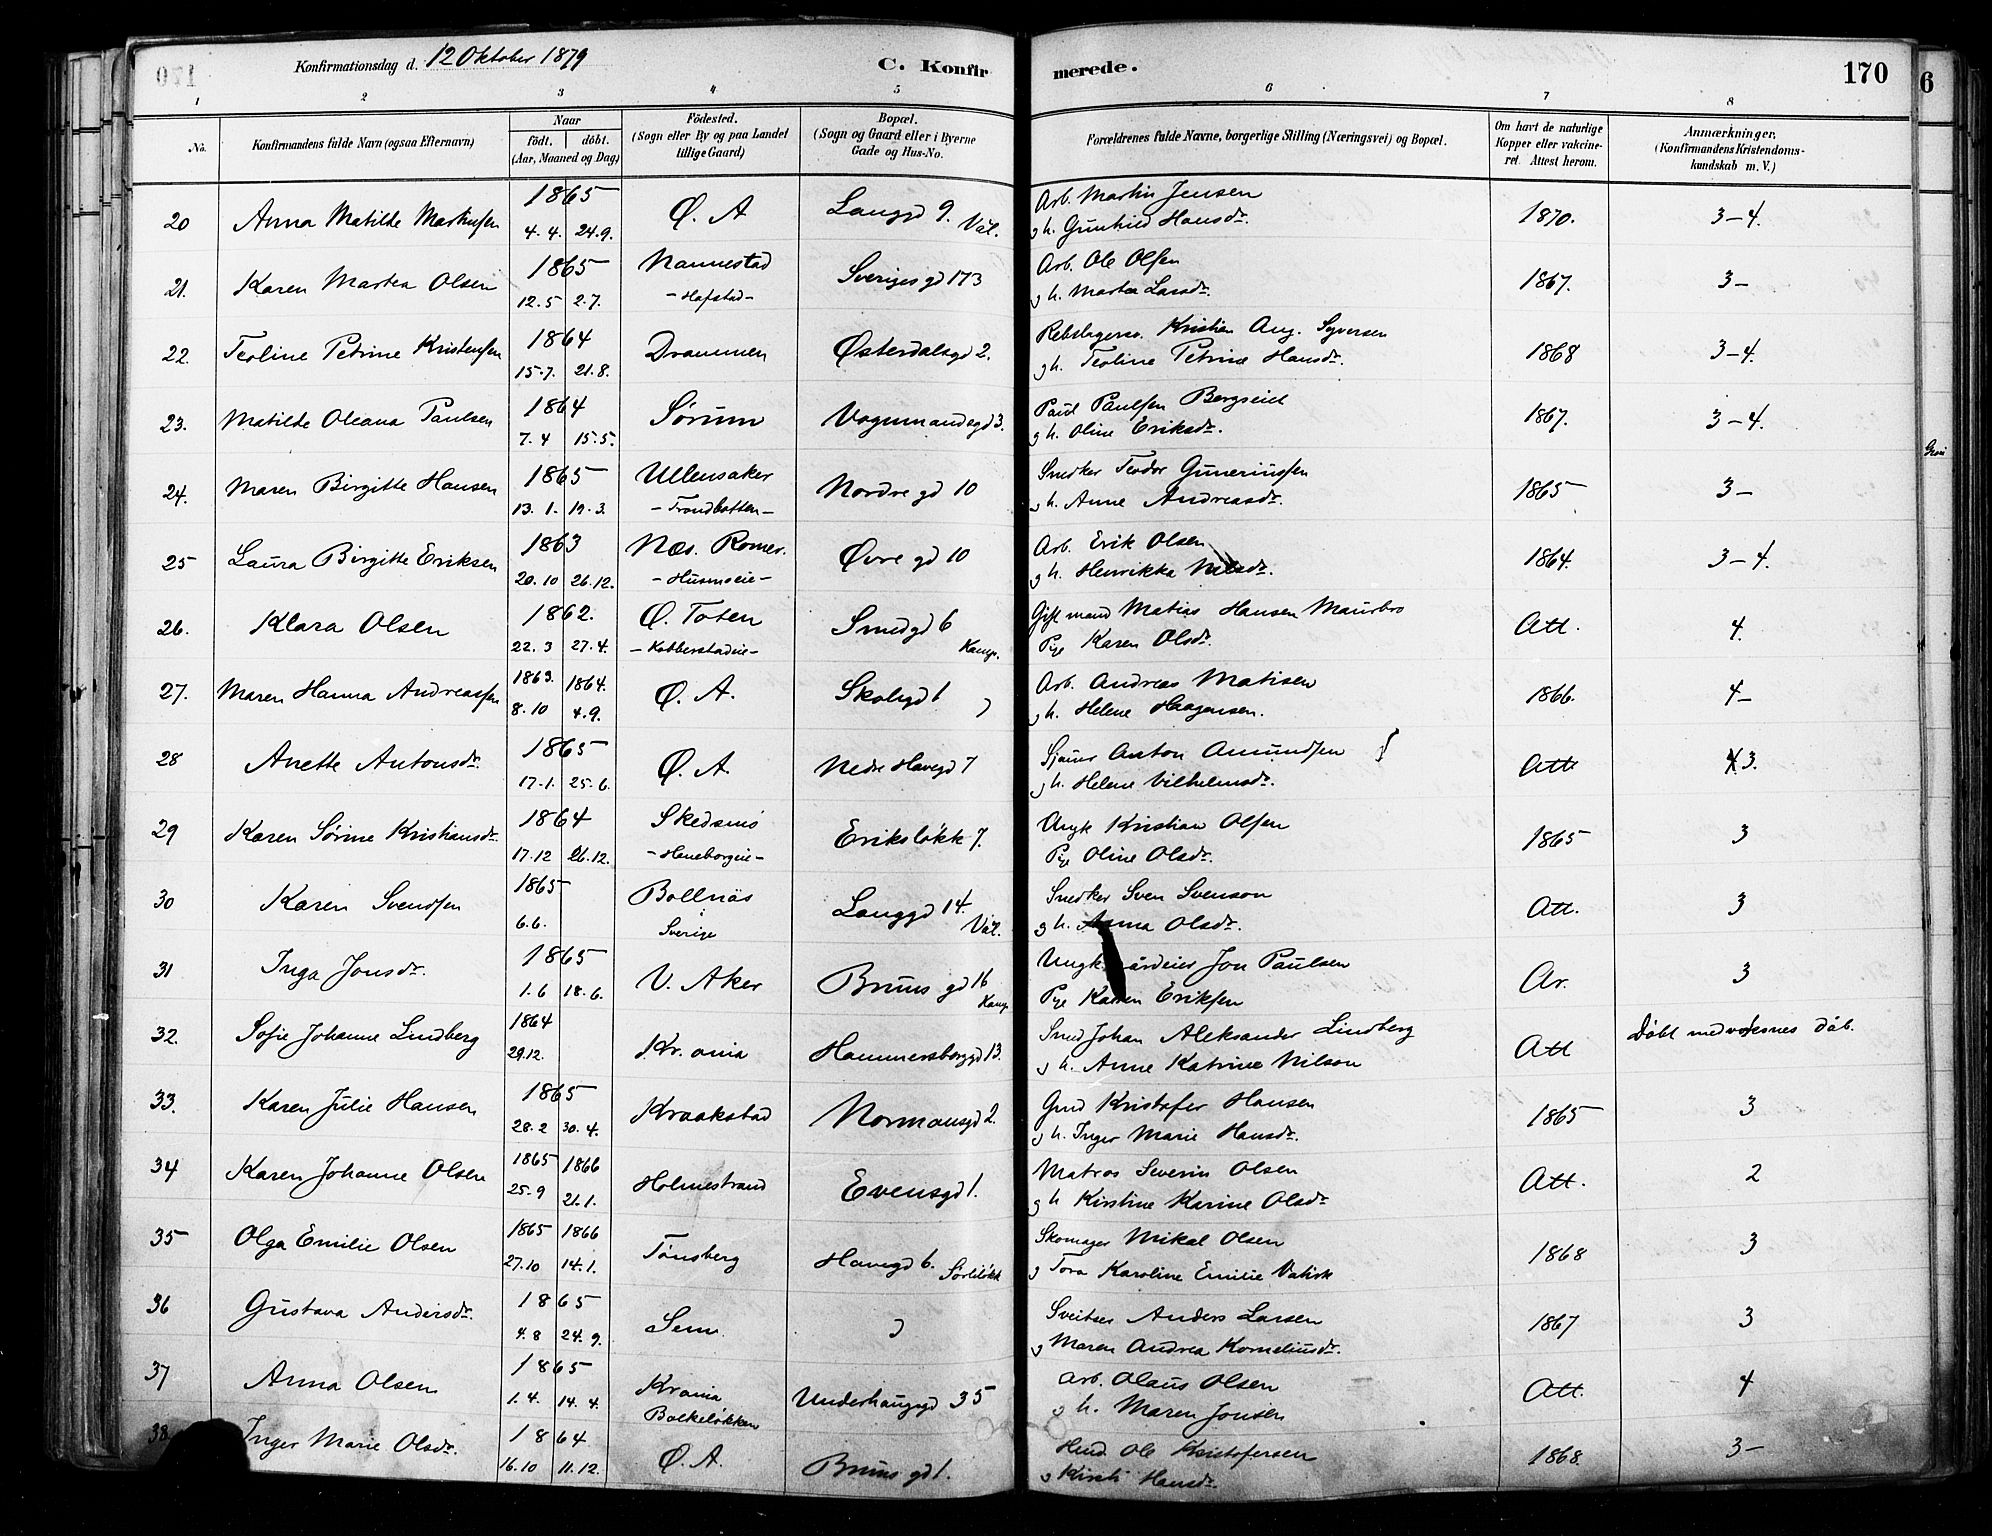 Konfirmationsdag d. 12 Oktober 1879
C. Konfirmerede.
170
6
1 2 3 4 5 6 7 8
No.
Konfirmandens fulde Navn (ogsaa Efternavn)
Naar
födt. döbt.
(Aar, Maaned og Dag)
Födested.
(Sogn eller By og paa Landet tillige Gaard)
Bopæl.
(Sogn og Gaard eller i Byerne Gade og Hus-No.
Forældrenes fulde Navne, borgerlige Stilling (Næringsvei) og Bopæl.
Om havt de naturlige Kopper eller vakcineret. Attest herom.
Anmærkninger,
(Konfirmandens Kristendomskundskab m. V.)
20 Anna Matilde Martinsen 1865 4.4. 24.9. Ø. A Langgd 9. Vål. Arb. Martin Jensen 1870. 3-4.
g h. Gunhild Hansdr.
21. Karen Martea Olsen 1865 12.5 2.7. Nannestad -Hofstad- Sveriges gd 173 Arb. Ole Olsen 1867. 3-
g h. Martea Larsdr.
22. Teoline Petrine Kristensen 1864 15.7. 21.8. Drammen Østerdalsgd 2. Kristian Aug. Syversen 1868 3-4.
g h. Teoline Petrine Hansdr.
23. Matilde Oleana Paulsen 1864 7.4 15.5. Sørum Vognmandsgd 3. Paul Paulsen Bergseid 1867. 3-4.
g h. Oline Eriksdr.
24. Maren Birgitte Hansen 1865 13.1. 19.3. Ullensaker -Trondbotten- Nordre gd 10 Snedker Teodor Gunneriussen 1865 3-
g h. Anne Andreasdr.
25 Laura Birgitte Eriksen 1863 20.10 26.12. Næs. Romer. -Husmoeie- Øvre gd 10 Arb. Erik Olsen 1864. 3-4.
g h. Henrikka Nilsdr.
26. Klara Olsen 1862. 22.3 27.4. Ø. Toten -Kobberstadeie- Smedgd 6 Kamp. Gift mand Matias Hansen Maurbro Att. 4.
Pige Karen Olsdr.
27. Maren Hanna Andreassen 1863. 8.10 1864. 4.9. Ø. A. Skolegd 1 Arb. Andreas Matisen 1866. 4-
g h. Helene Haagensen.
28 Anette Antonsdr. 1865 17.1. 25.6. Ø. A. Nedre Havegd 7 Sjauer Anton Amundsen Att 3.
g h. Helene Vilhelmsdr.
29 Karen Sørine Kristiansdr. 1864 17.12 26.12. Skedsmo Eriksløkk 7. Ungk Kristian Olsen 1865 3
Pige Oline Olsdr.
30 Karen Svendsen 1865 6.6. Bollnäs Sverige Langgd 14. Vål. Snedker Sven Svenson Att. 3
g h. Anna Olsdr.
31 Inga Jonsdr. 1865 1.6 18.6. V. Aker Bruns gd 16 Kamp Ungk. Jon Paulsen Ar. 3
Pige Karen Eriksen
32. Sofie Johanne Lindberg 1864 29.12. Kr.ania Hammersborggd 13. Smed Johan Aleksander Lindberg Att Döbt med voksnes dåb.
g h. Anne Katrine Nilson
33. Karen Julie Hansen 1865 28.2 30.4. Kraakstad Normansgd 2. Gmd Kristofer Hansen 1865 3
g h. Inger Marie Hansdr.
34 Karen Johanne Olsen 1865 25.9 1866 21.1. Holmestrand Evensgd 1. Matros Severin Olsen Att. 2
g h Kirstine Karine Olsdr
35 Olga Emilie Olsen 1865 27.10 1866 14.1. Tønsberg Havegd 6. Sørliløkk Skomager Mikal Olsen 1868 3
g Tora Karoline Emilie
36 Gustava Andersdr. 1865 4.8 24.9. Sem Sveitser Anders Larsen 1867 3
g Maren Andrea Korneliusdr.
37 Anna Olsen 1865 1.4. 14.4. Kr.ania Bolkeløkken Underhaugsgd 35 Arb. Olaus Olsen Att. 4
g h. Maren Jonsen
38 Inger Marie Olsdr. 1864 16.10 11.12. Ø. A. Bruns gd 1. Hmd. Ole Kristofersen 1868. 3-
g Kirsti Hansdr.